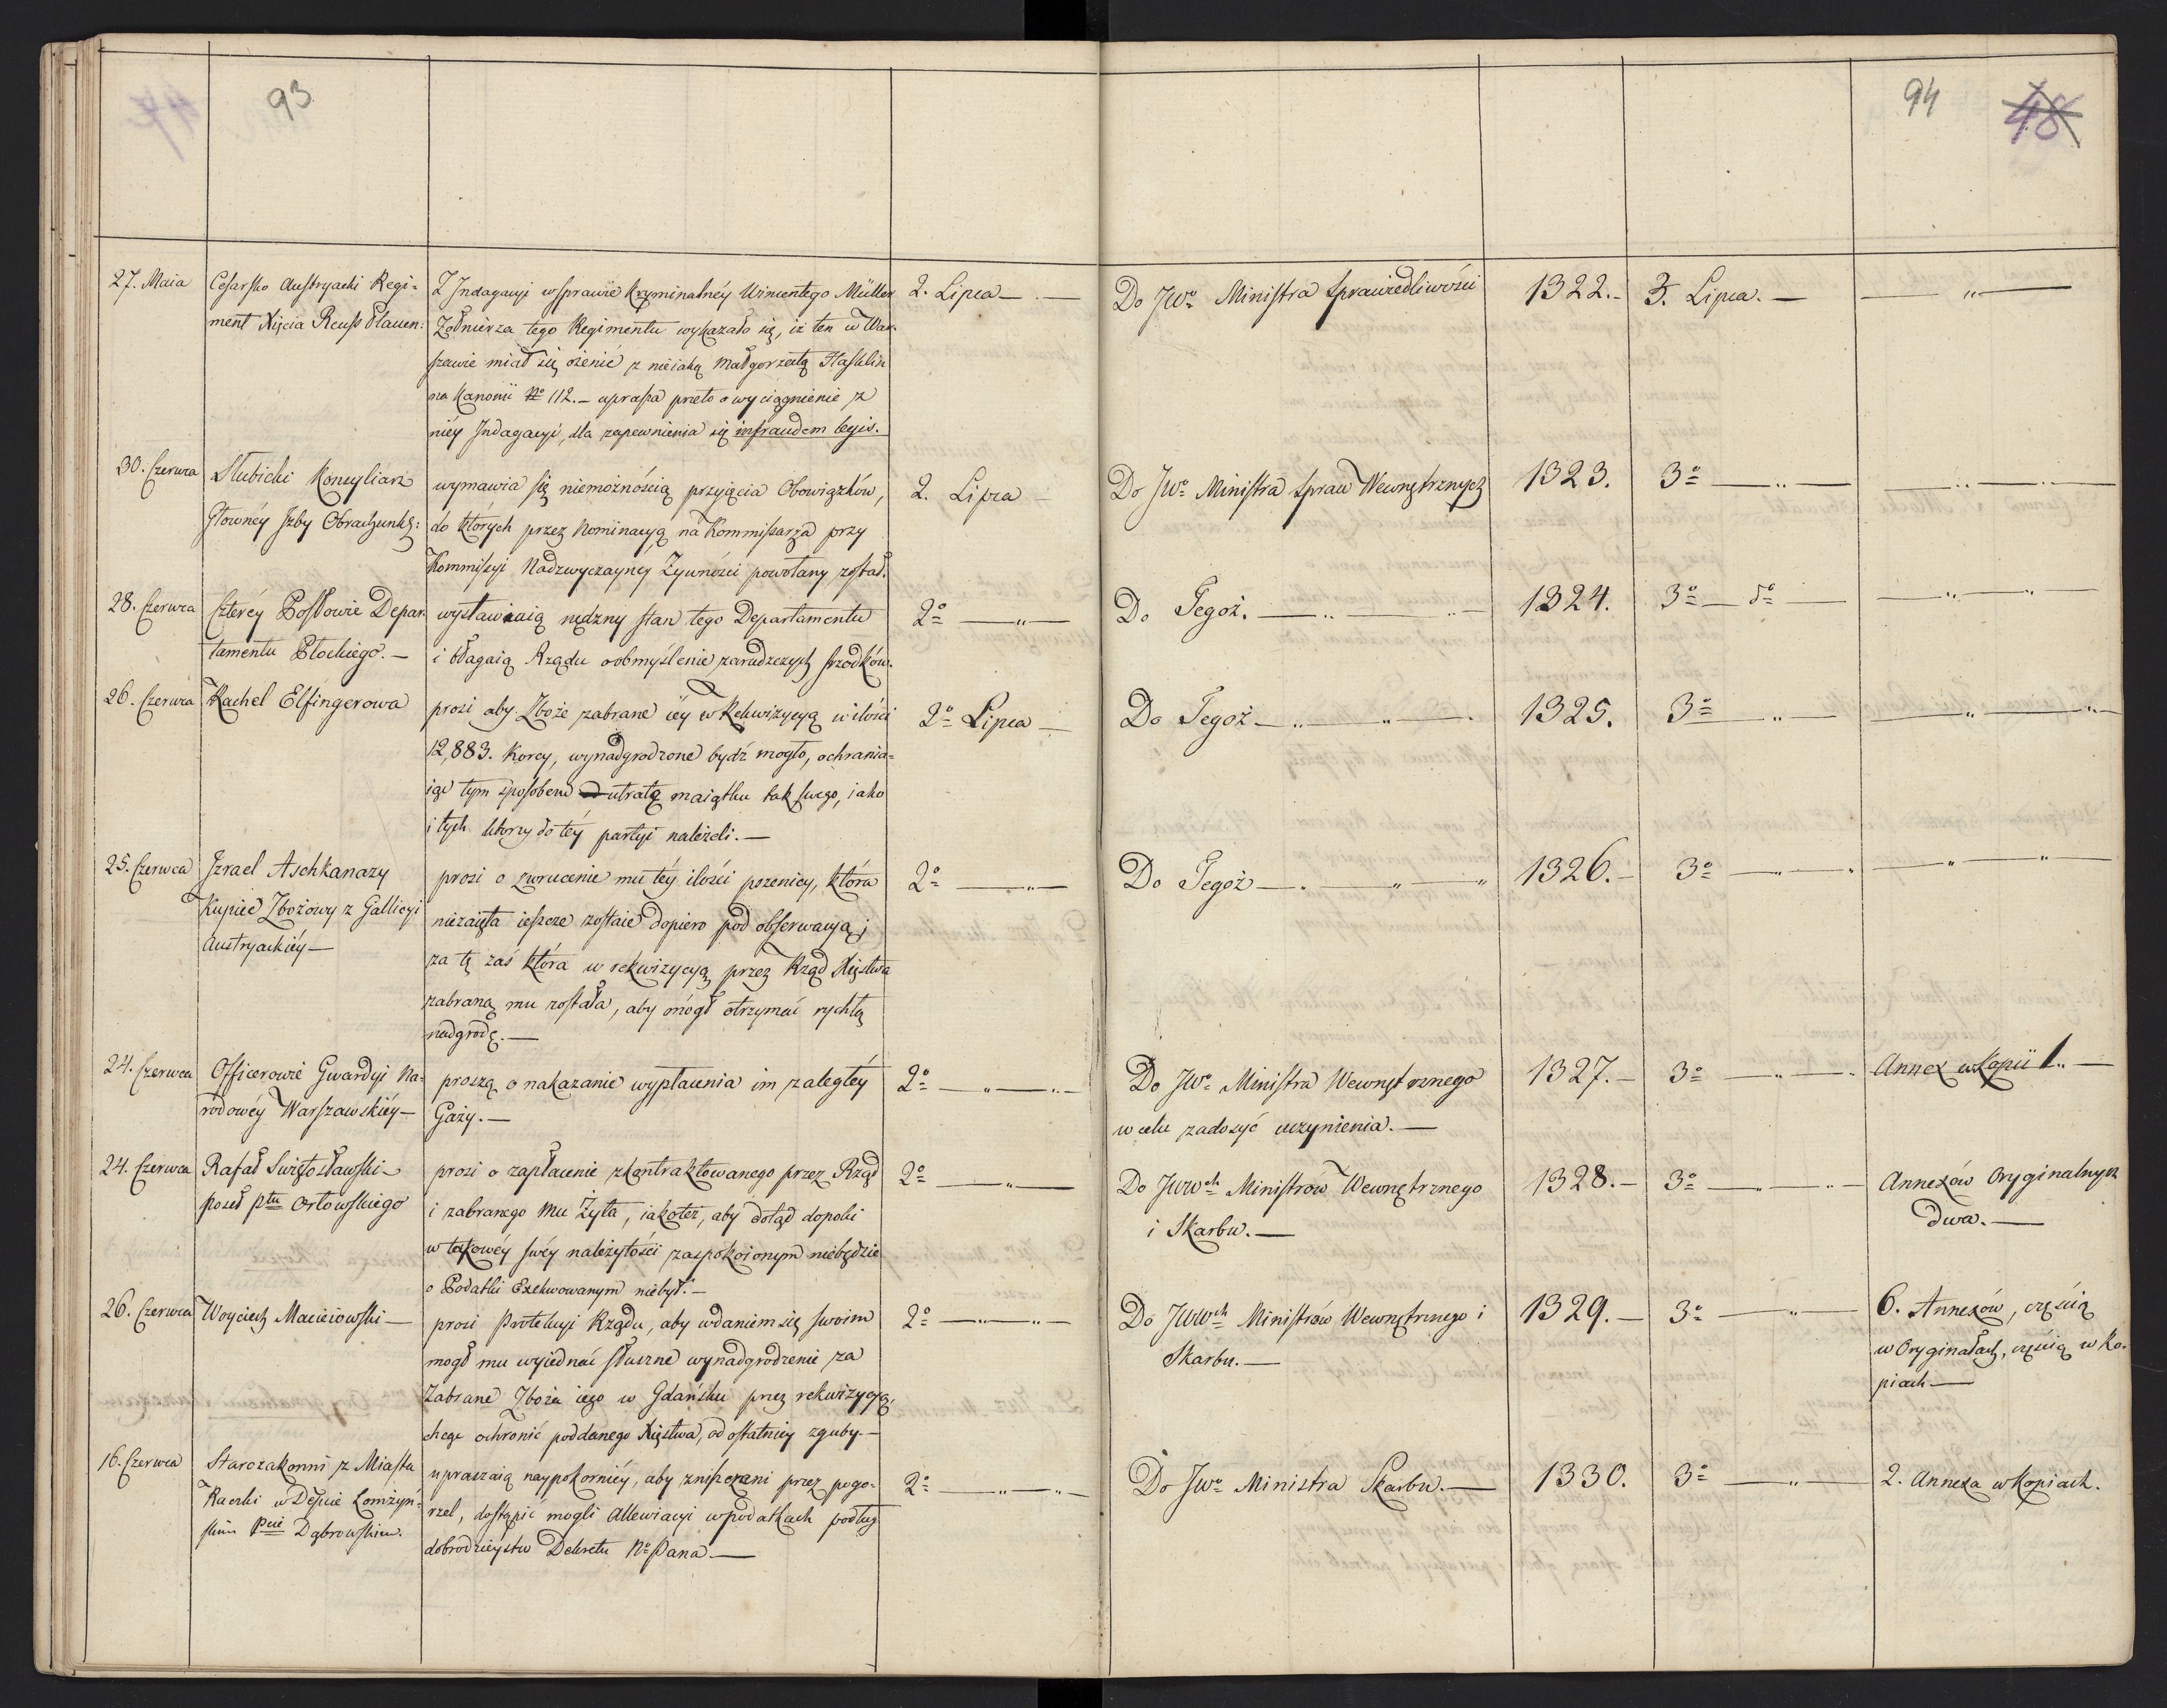 47
93
94
48
27. Maia
Cesarsko Austryacki Regi-
ment Xięcia Reuss Plauen:
Z Jndagacyi wsprawie kryminalnéy Wincentego Müller
Żołnierza tego Regimentu wykazało się, iż ten w War-
szawie miał się ożenić z nieiaką Małgorzatą Hasklin
na Kanonii No 112. – uprasza przeto o wyciągnienie z
niéy Jndagacyi, dla zapewnienia się infraudem legis.
2. Lipca —
Do JWo Ministra Sprawiedliwości
1322. –
3. Lipca. —
— „ —
30. Czerwca
Słubicki Konsyliarz
Głownéy Jzby Obrachunk:
wymawia się niemożnością przyięcia Obowiązków,
do których przez Nominacyą na Kommissarza przy
Kommissyi Nadzwyczayney Żywności powołany został.
2. Lipca –
Do JWo Ministra Spraw Wewnętrznych
1323.
3o — „ —
— „ — „ —
28. Czerwca
Czteréy Posłowie Depar-
tamentu Płockiego. —
wystawiaią nędzny stan tego Departamentu
i błagaią Rządu oobmyślenie zaradczych srzodków.
2o — „ —
Do Tegoż. — „ — „ —
1324.
3o — do —
— „ — „ —
26. Czerwca
Rachel Elfingerowa
prosi aby Zboże zabrane iéy w Rekwizycyą w ilości
12,883. Korcy, wynadgrodzone bydź mogło, ochrania-
iąc tym sposobem utratę maiątku tak swego, iako
i tych którzy do téy partyi należeli. —
2o Lipca —
Do Tegoż — „ — „ — .
1325.
3o — „ —
— „ — „ —
25. Czerwca
Jzrael Aschkanazy
Kupiec Zbożowy z Gallicyi
Austryackiéy —
prosi o zwrucenie mu téy ilości pszenicy, która
niezaięta ieszcze zostaie dopiero pod obserwacyą;
za tę zaś która w rekwizycyą przez Rząd Xięstwa
zabraną mu została, aby mógł otrzymać rychłą
nadgrodę. —
2o — „ —
Do Tegoż — . — „ — „
1326. –
3o — „ — .
— „ — „ —
24. Czerwca
Officerowie Gwardyi Na-
rodowéy Warszawskiéy —
proszą o nakazanie wypłacenia im zaległéy
Gaży. —
2o — „ — „ –
Do JWo Ministra Wewnętrznego
w celu zadosyć uczynienia. —
1327. –
3o — „ — .
Annex wKopii 1. —
24. Czerwca
Rafał Swiętosławski –
poseł ptu Orłowskiego
prosi o zapłacenie zkontraktowanego przez Rząd
i zabranego Mu Żyta, iakoteż, aby dotąd dopoki
w takowéy swéy należytości zaspokoionym niebędzie
o Podatki Exekwowanym niebył. —
2o — „ —
Do JWWch Ministrów Wewnętrznego
i Skarbu. —
1328. –
3o — „ — „ –
Annexów Oryginalnych
dwa. —
26. Czerwca
Woyciech Macieiowski —
prosi Protekcyi Rządu, aby wdaniem się swoim
mogł mu wyiednać słuszne wynadgrodzenie za
Zabrane Zboże iego w Gdańsku przez rekwizycyą,
chcąc ochronić poddanego Xięstwa, od ostatniéy zguby. —
2o — „ — „ —
Do JWWch Ministrów Wewnętrznego i
Skarbu. —
1329. —
3o — „ —
6. Annexów, częścią
w Oryginałach, częścią w Ko-
piach —
16. Czerwca
Starozakonni z Miasta
Raczki w Depcie Łomżyń-
skim Pcie Dąbrowskim.
upraszaią naypokorniéy, aby zniszczeni przez pogo-
rzel, dostąpić mogli Allewiacyi wpodatkach podług
dobrodzieystw Dekretu No Pana —
2o — „ — „ –
Do JWo Ministra Skarbu. —
1330.
3o — „ —
2. Annexa wKopiach.